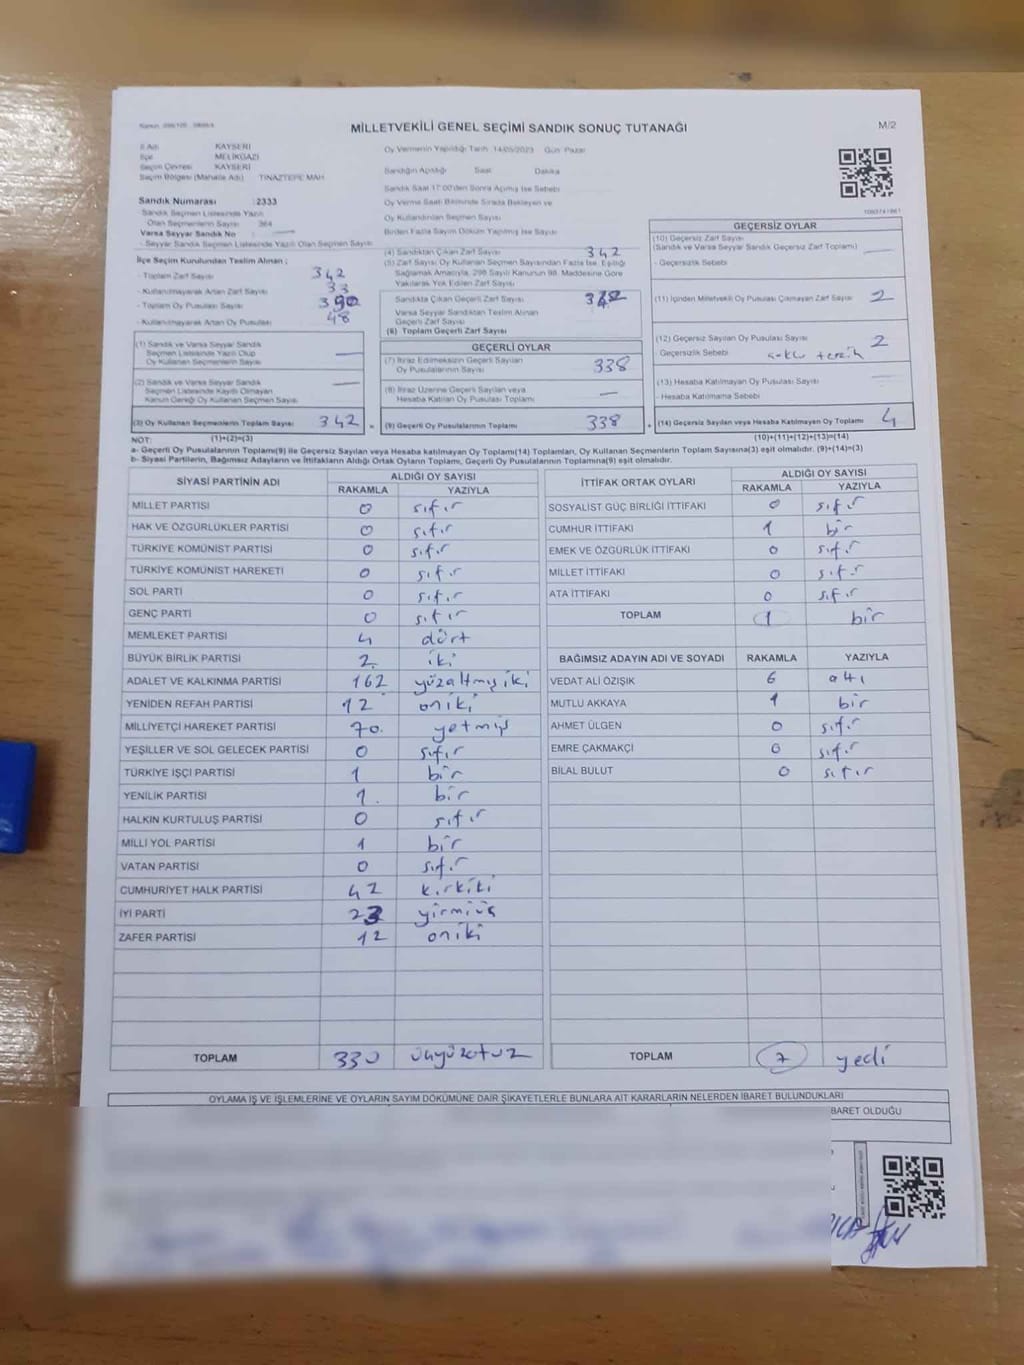 MİLLETVEKİLİ GENEL SEÇİMİ SANDIK SONUÇ TUTANAĞI
M/2
İl Adı KAYSERİ
İlçe MELİKGAZİ
Seçim Çevresi KAYSERİ
Seçim Bölgesi (Mahalle Adı) TINAZTEPE MAH
Sandık Numarası :2333
Sandık Seçmen Listesinde Yazılı
Olan Seçmenlerin Sayısı 364
Varsa Seyyar Sandık No :
- Seyyar Sandık Seçmen Listesinde Yazılı Olan Seçmen Sayısı
İlçe Seçim Kurulundan Teslim Alınan ;
- Toplam Zarf Sayısı 342
- Kullanılmayarak Artan Zarf Sayısı 33
- Toplam Oy Pusulası Sayısı 390
- Kullanılmayarak Artan Oy Pusulası 48
(1) Sandık ve Varsa Seyyar Sandık
Seçmen Listesinde Yazılı Olup
Oy Kullanan Seçmenlerin Sayısı
(2) Sandık ve Varsa Seyyar Sandık
Seçmen Listesinde Kayıtlı Olmayan
Kanun Gereği Oy Kullanan Seçmen Sayısı
(3) Oy Kullanan Seçmenlerin Toplam Sayısı 342 =
Oy Vermenin Yapıldığı Tarih 14/05/2023 Gün Pazar
Sandığın Açıldığı Saat Dakika
Sandık Saat 17:00'den Sonra Açılmış İse Sebebi
Oy Verme Saati Bitiminde Sırada Bekleyen ve
Oy Kullandırılan Seçmen Sayısı
Birden Fazla Sayım Döküm Yapılmış İse Sayısı
(4) Sandıktan Çıkan Zarf Sayısı 342
(5) Zarf Sayısı Oy Kullanan Seçmen Sayısından Fazla İse, Eşitliği
Sağlamak Amacıyla, 298 Sayılı Kanunun 98. Maddesine Göre
Yakılarak Yok Edilen Zarf Sayısı
Sandıkta Çıkan Geçerli Zarf Sayısı 342
Varsa Seyyar Sandıktan Teslim Alınan
Geçerli Zarf Sayısı
(6) Toplam Geçerli Zarf Sayısı
GEÇERLİ OYLAR
(7) İtiraz Edilmeksizin Geçerli Sayılan
Oy Pusulalarının Sayısı 338
(8) İtiraz Üzerine Geçerli Sayılan veya
Hesaba Katılan Oy Pusulası Toplamı
(9) Geçerli Oy Pusulalarının Toplamı 338 +
GEÇERSİZ OYLAR
(10) Geçersiz Zarf Sayısı
(Sandık ve Varsa Seyyar Sandık Geçersiz Zarf Toplamı)
- Geçersizlik Sebebi
(11) İçinden Milletvekili Oy Pusulası Çıkmayan Zarf Sayısı 2
(12) Geçersiz Sayılan Oy Pusulası Sayısı 2
Geçersizlik Sebebi
(13) Hesaba Katılmayan Oy Pusulası Sayısı
- Hesaba Katılmama Sebebi
(14) Geçersiz Sayılan veya Hesaba Katılmayan Oy Toplamı 4
NOT: (1)+(2)=(3) (10)+(11)+(12)+(13)=(14)
a- Geçerli Oy Pusulalarının Toplamı(9) ile Geçersiz Sayılan veya Hesaba katılmayan Oy Toplamı(14) Toplamları, Oy Kullanan Seçmenlerin Toplam Sayısına(3) eşit olmalıdır. (9)+(14)=(3)
b- Siyasi Partilerin, Bağımsız Adayların ve İttifakların Aldığı Ortak Oyların Toplamı, Geçerli Oy Pusulalarının Toplamına(9) eşit olmalıdır.
SİYASİ PARTİNİN ADI ALDIĞI OY SAYISI
RAKAMLA YAZIYLA
MİLLET PARTİSİ 0 sıfır
HAK VE ÖZGÜRLÜKLER PARTİSİ 0 sıfır
TÜRKİYE KOMÜNİST PARTİSİ 0 sıfır
TÜRKİYE KOMÜNİST HAREKETİ 0 sıfır
SOL PARTİ 0 sıfır
GENÇ PARTİ 0 sıfır
MEMLEKET PARTİSİ 4 dört
BÜYÜK BİRLİK PARTİSİ 2 iki
ADALET VE KALKINMA PARTİSİ 162 yüzaltmışiki
YENİDEN REFAH PARTİSİ 12 oniki
MİLLİYETÇİ HAREKET PARTİSİ 70. yetmiş
YEŞİLLER VE SOL GELECEK PARTİSİ 0 sıfır
TÜRKİYE İŞÇİ PARTİSİ 1 bir
YENİLİK PARTİSİ 1. bir
HALKIN KURTULUŞ PARTİSİ 0 sıfır
MİLLİ YOL PARTİSİ 1 bir
VATAN PARTİSİ 0 sıfır
CUMHURİYET HALK PARTİSİ 42 kırkiki
İYİ PARTİ 23 yirmiüç
ZAFER PARTİSİ 12 oniki
TOPLAM 330 üçyüzotuz
İTTİFAK ORTAK OYLARI ALDIĞI OY SAYISI
RAKAMLA YAZIYLA
SOSYALİST GÜÇ BİRLİĞİ İTTİFAKI 0 sıfır
CUMHUR İTTİFAKI 1 bir
EMEK VE ÖZGÜRLÜK İTTİFAKI 0 sıfır
MİLLET İTTİFAKI 0 sıfır
ATA İTTİFAKI 0 sıfır
TOPLAM 1 bir
BAĞIMSIZ ADAYIN ADI VE SOYADI RAKAMLA YAZIYLA
VEDAT ALİ ÖZIŞIK 6 altı
MUTLU AKKAYA 1 bir
AHMET ÜLGEN 0 sıfır
EMRE ÇAKMAKÇİ 0 sıfır
BİLAL BULUT 0 sıfır
TOPLAM 7 yedi
OYLAMA İŞ VE İŞLEMLERİNE VE OYLARIN SAYIM DÖKÜMÜNE DAİR ŞİKAYETLERLE BUNLARA AİT KARARLARIN NELERDEN İBARET BULUNDUKLARI
BARET OLDUĞU